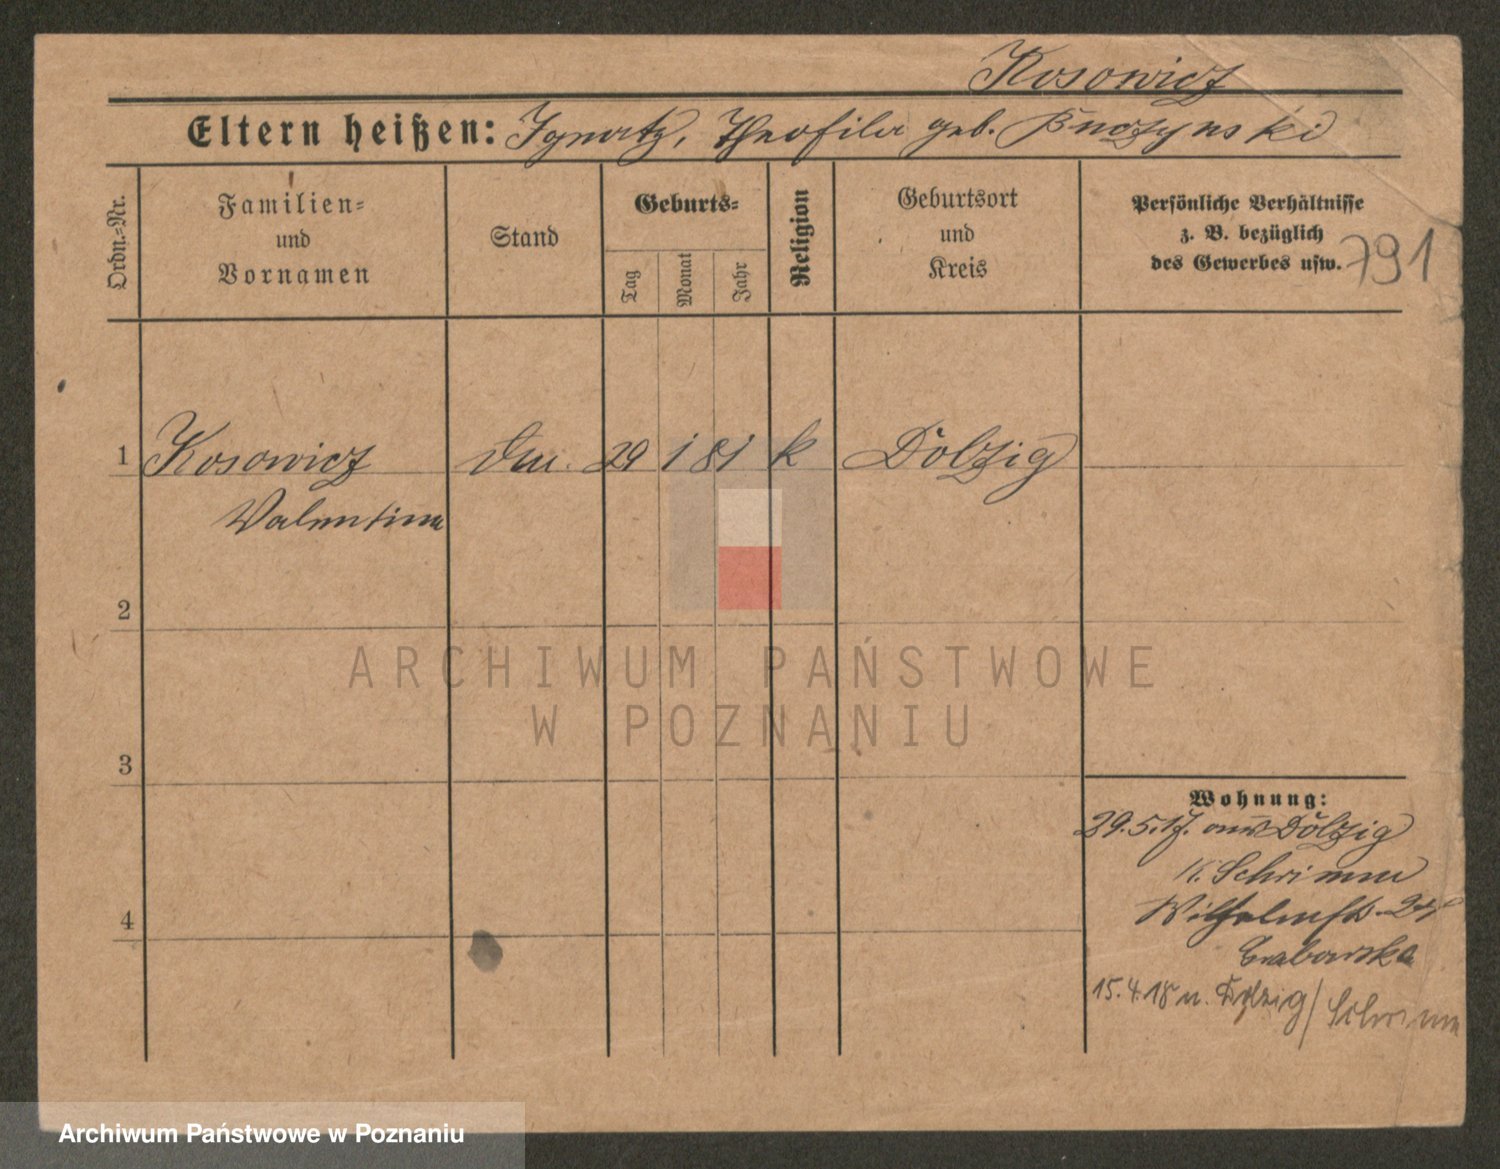 Kosowicz
Eltern heißen: Ignatz, Theofila geb. Buczynski
Ordn.-Nr.
Familien-
und
Vornamen
Stand
Geburts-
Tag
Monat
Jahr
Religion
Geburtsort
und
Kreis
Persönliche Verhältnisse
z. B. bezüglich
des Gewerbes usw.
791
1 Kosowicz 29 1 81 k Dolzig
Valentina
2
3
4
Wohnung:
29.5.17. aus Dolzig
K. Schrimm
Wilhelmstr. 24
Grabowska
15.4.18 n. Dolzig/Schrimm
ARCHIWUM PAŃSTWOWE
W POZNANIU
Archiwum Państwowe w Poznaniu